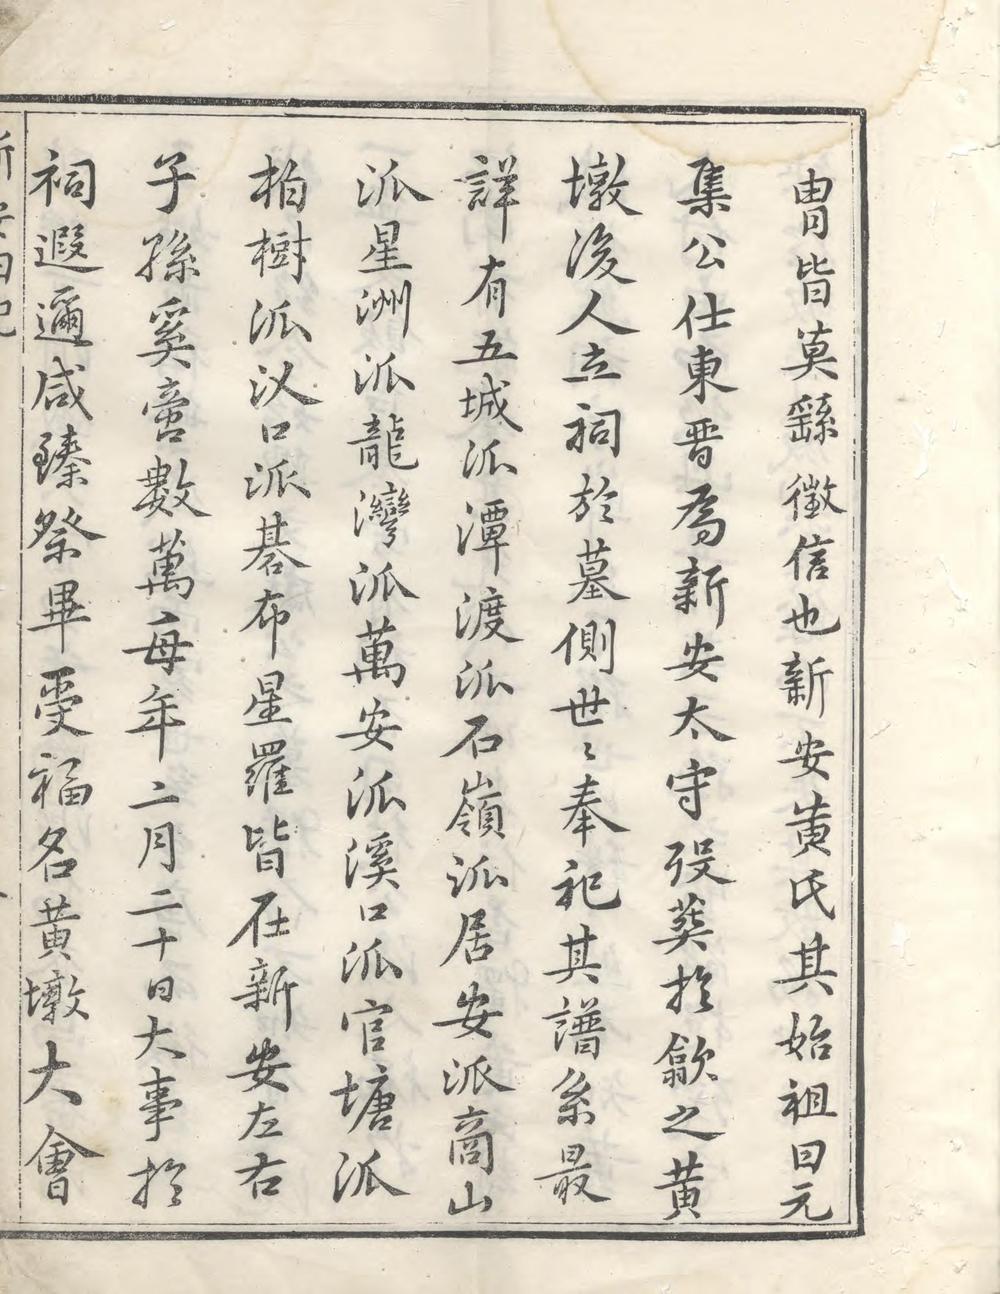 冑皆莫繇徵信也新安黄氏其始祖曰元
集公仕東晋為新安太守歿葬扵歙之黄
墩後人立祠於墓側世〻奉祀其譜系最
詳有五城派潭渡派石嶺派居安派商山
派星洲派龍灣派萬安派溪口派官塘派
柏樹派汊口派碁布星羅皆在新安左右
子孫奚啻數萬每年二月二十日大事扵
祠遐邇咸臻祭畢受福名黄墩大會